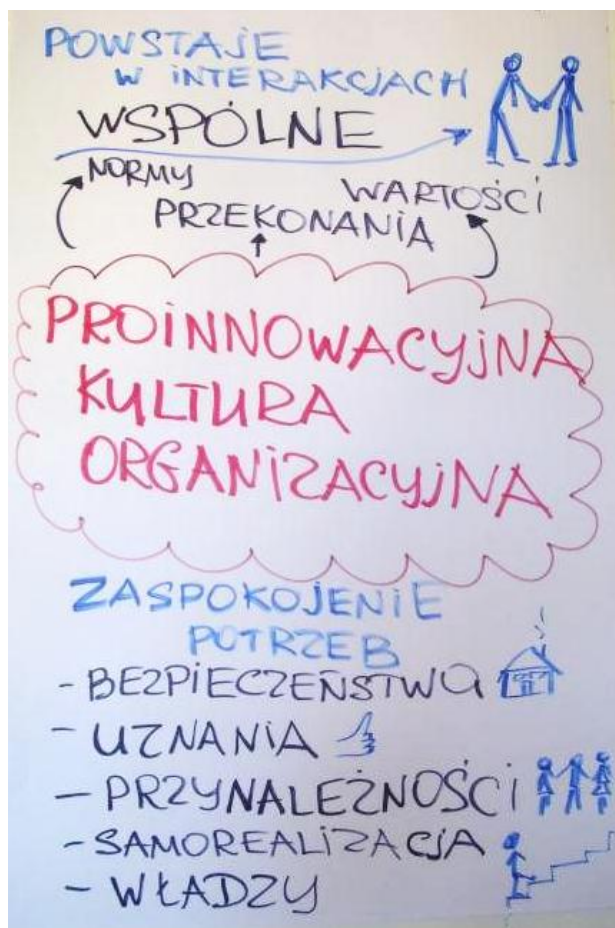 POWSTAJE
W INTERAKCJACH
WSPÓLNE
NORMY
WARTOŚCI
PRZEKONANIA
PROINNOWACYJNA
KULTURA
ORGANIZACYJNA
ZASPOKOJENIE
POTRZEB
- BEZPIECZEŃSTWA
- UZNANIA
- PRZYNALEŻNOŚCI
- SAMOREALIZACJA
- WŁADZY